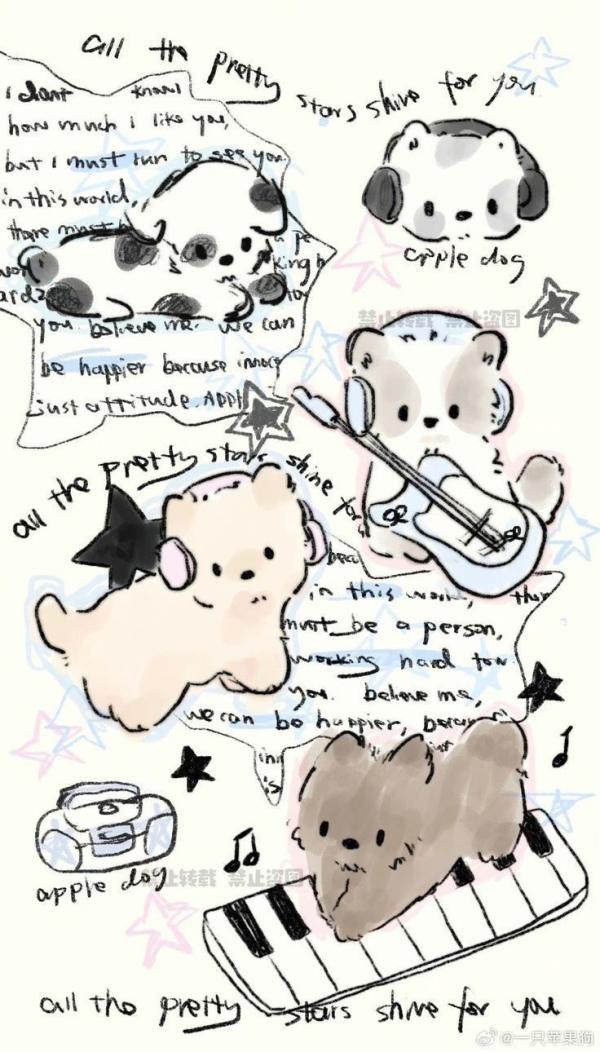 all the pretty
stars shine for you
i know
how much i like you,
but i must run to see you
in this world,
there must
apple dog
禁止转载 禁止盗图
you believe me. we can
be happier because
just attitude. APPl
all the pretty stars shine for
becau
in this world, ther
must be a person,
working hard tow
you. believe me,
we can be happier, because
apple dog
禁止转载 禁止盗图
all the pretty stars shine for you
@一只苹果狗